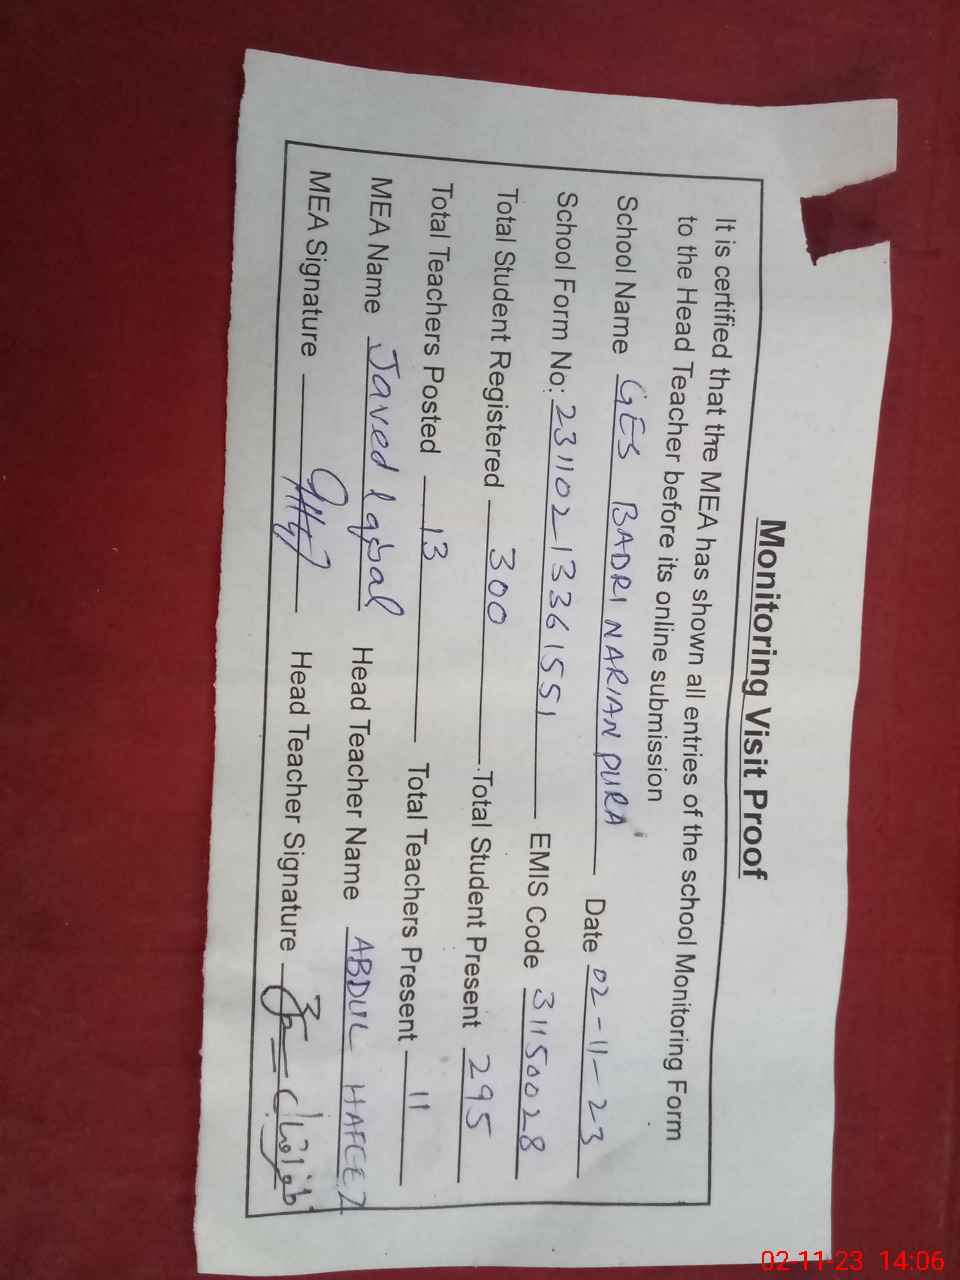 Monitoring Visit Proof
It is certified that the MEA has shown all entries of the school Monitoring Form
to the Head Teacher before its online submission
School Name GES BADRI NARIAN PURA Date 02-11-23
School Form No: 231102 13361551 EMIS Code 31150028
Total Student Registered 300 Total Student Present 295
Total Teachers Posted 13 Total Teachers Present 11
MEA Name Javed Iqbal Head Teacher Name ABDUL HAFEEZ
MEA Signature Head Teacher Signature
02-11-23 14:06